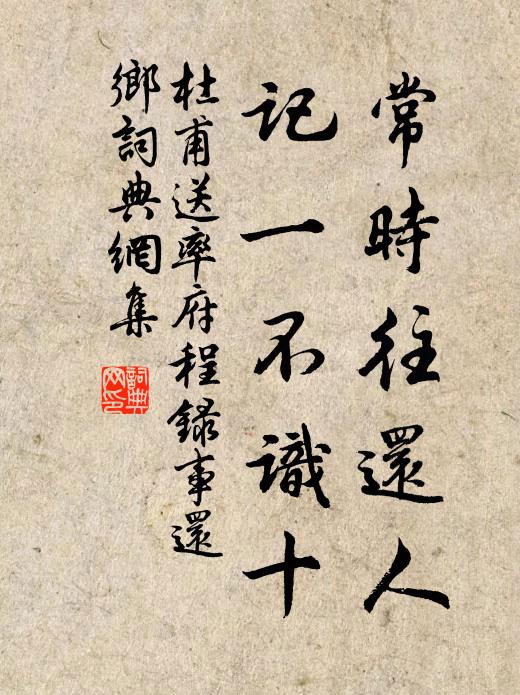 常時往還人
記一不識十
杜甫送率府程錄事還
鄉詞典網集
詞典
网印